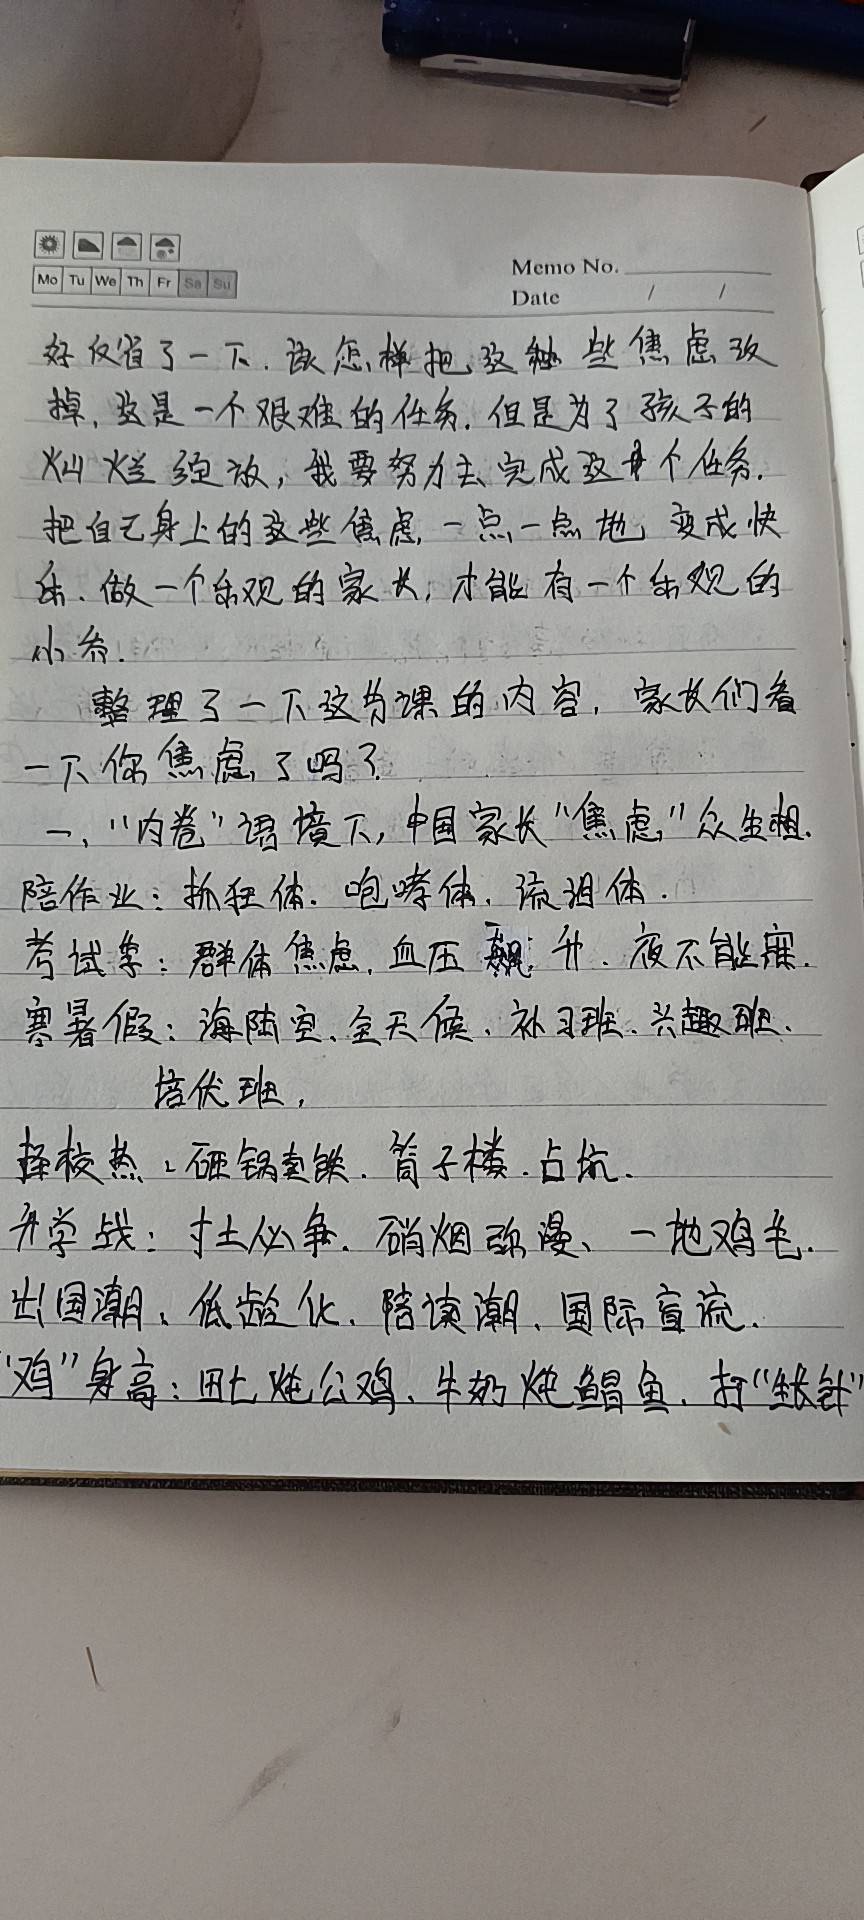 Mo Tu We Th Fr Sa Su
Memo No.
Date / /
好反省了一下.该怎样把这些焦虑改
掉,这是一个艰难的任务.但是为了孩子的
灿烂绽放,我要努力去完成这个任务.
把自己身上的这些焦虑,一点一点地,变成快
乐.做一个乐观的家长,才能有一个乐观的
小务.
整理了一下这节课的内容,家长们看
一下你焦虑了吗?
一、“内卷”语境下,中国家长“焦虑”众生相.
陪作业:抓狂体.咆哮体.流泪体.
考试季:群体焦虑.血压飙升.夜不能寐.
寒暑假:海陆空、全天候、补习班、兴趣班、
培优班,
择校热:砸锅卖铁.筒子楼.占坑.
升学战:寸土必争.硝烟弥漫、一地鸡毛.
出国潮:低龄化.陪读潮、国际盲流.
“鸡”身高:田七炖公鸡、牛奶炖鲳鱼.打“生长针”